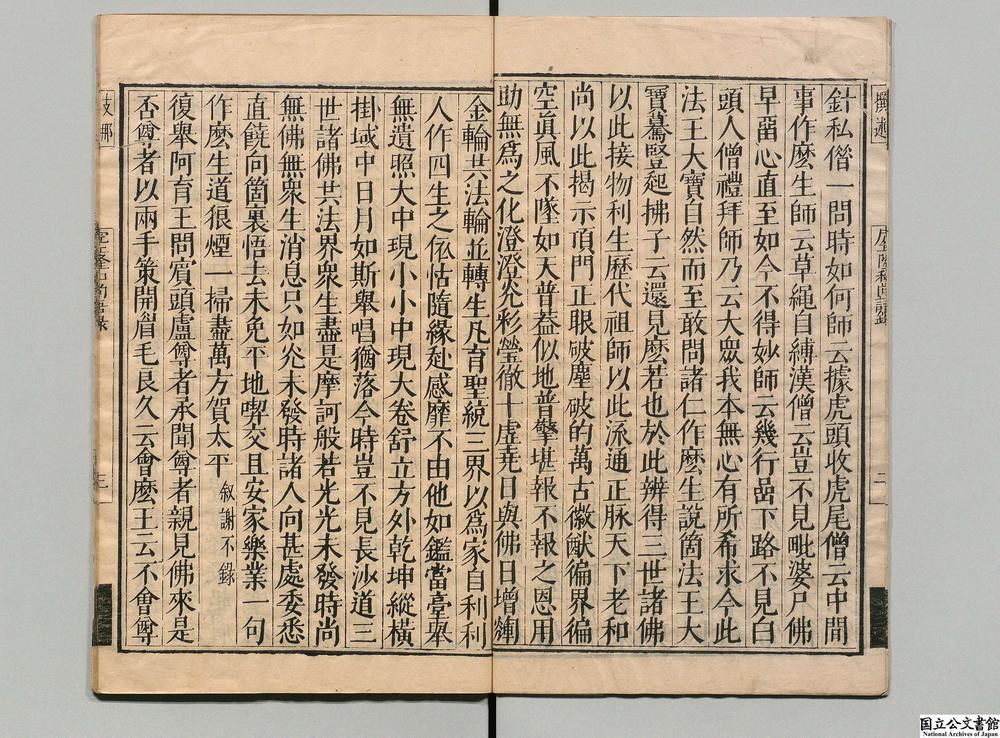 針私僭一問時如何師云據虎頭收虎尾僧云中間
事作麽生師云草繩自縛漢僧云豈不見毗婆尸佛
早留心直至如今不得妙師云幾行嵒下路不見白
頭人僧禮拜師乃云大眾我本無心有所希求今此
法王大寶自然而至敢問諸仁作麽生說箇法王大
寶驀豎起拂子云還見麽若也於此辨得三世諸佛
以此接物利生歷代祖師以此流通正脉天下老和
尚以此揭示頂門正眼破塵破的萬古徽猷徧界徧
空真風不墜如天普蓋似地普擎堪報不報之恩用
助無為之化澄澄光彩瑩徹十虛堯日與佛日增輝
金輪共法輪並轉生凡育聖統三界以為家自利利
人作四生之依怙隨緣赴感靡不由他如鑑當臺舉
無遺照大中現小小中現大卷舒立方外乾坤縱橫
掛域中日月如斯舉唱猶落今時豈不見長沙道三
世諸佛共法界眾生盡是摩訶般若光光未發時尚
無佛無眾生消息只如光未發時諸人向甚處委悉
直饒向箇裏悟去未免平地喫交且安家樂業一句
作麽生道狼煙一掃盡萬方賀太平 叙謝不錄
復舉阿育王問賓頭盧尊者承聞尊者親見佛來是
否尊者以兩手策開眉毛良久云會麽王云不會尊
二
三
国立公文書館
National Archives of Japan